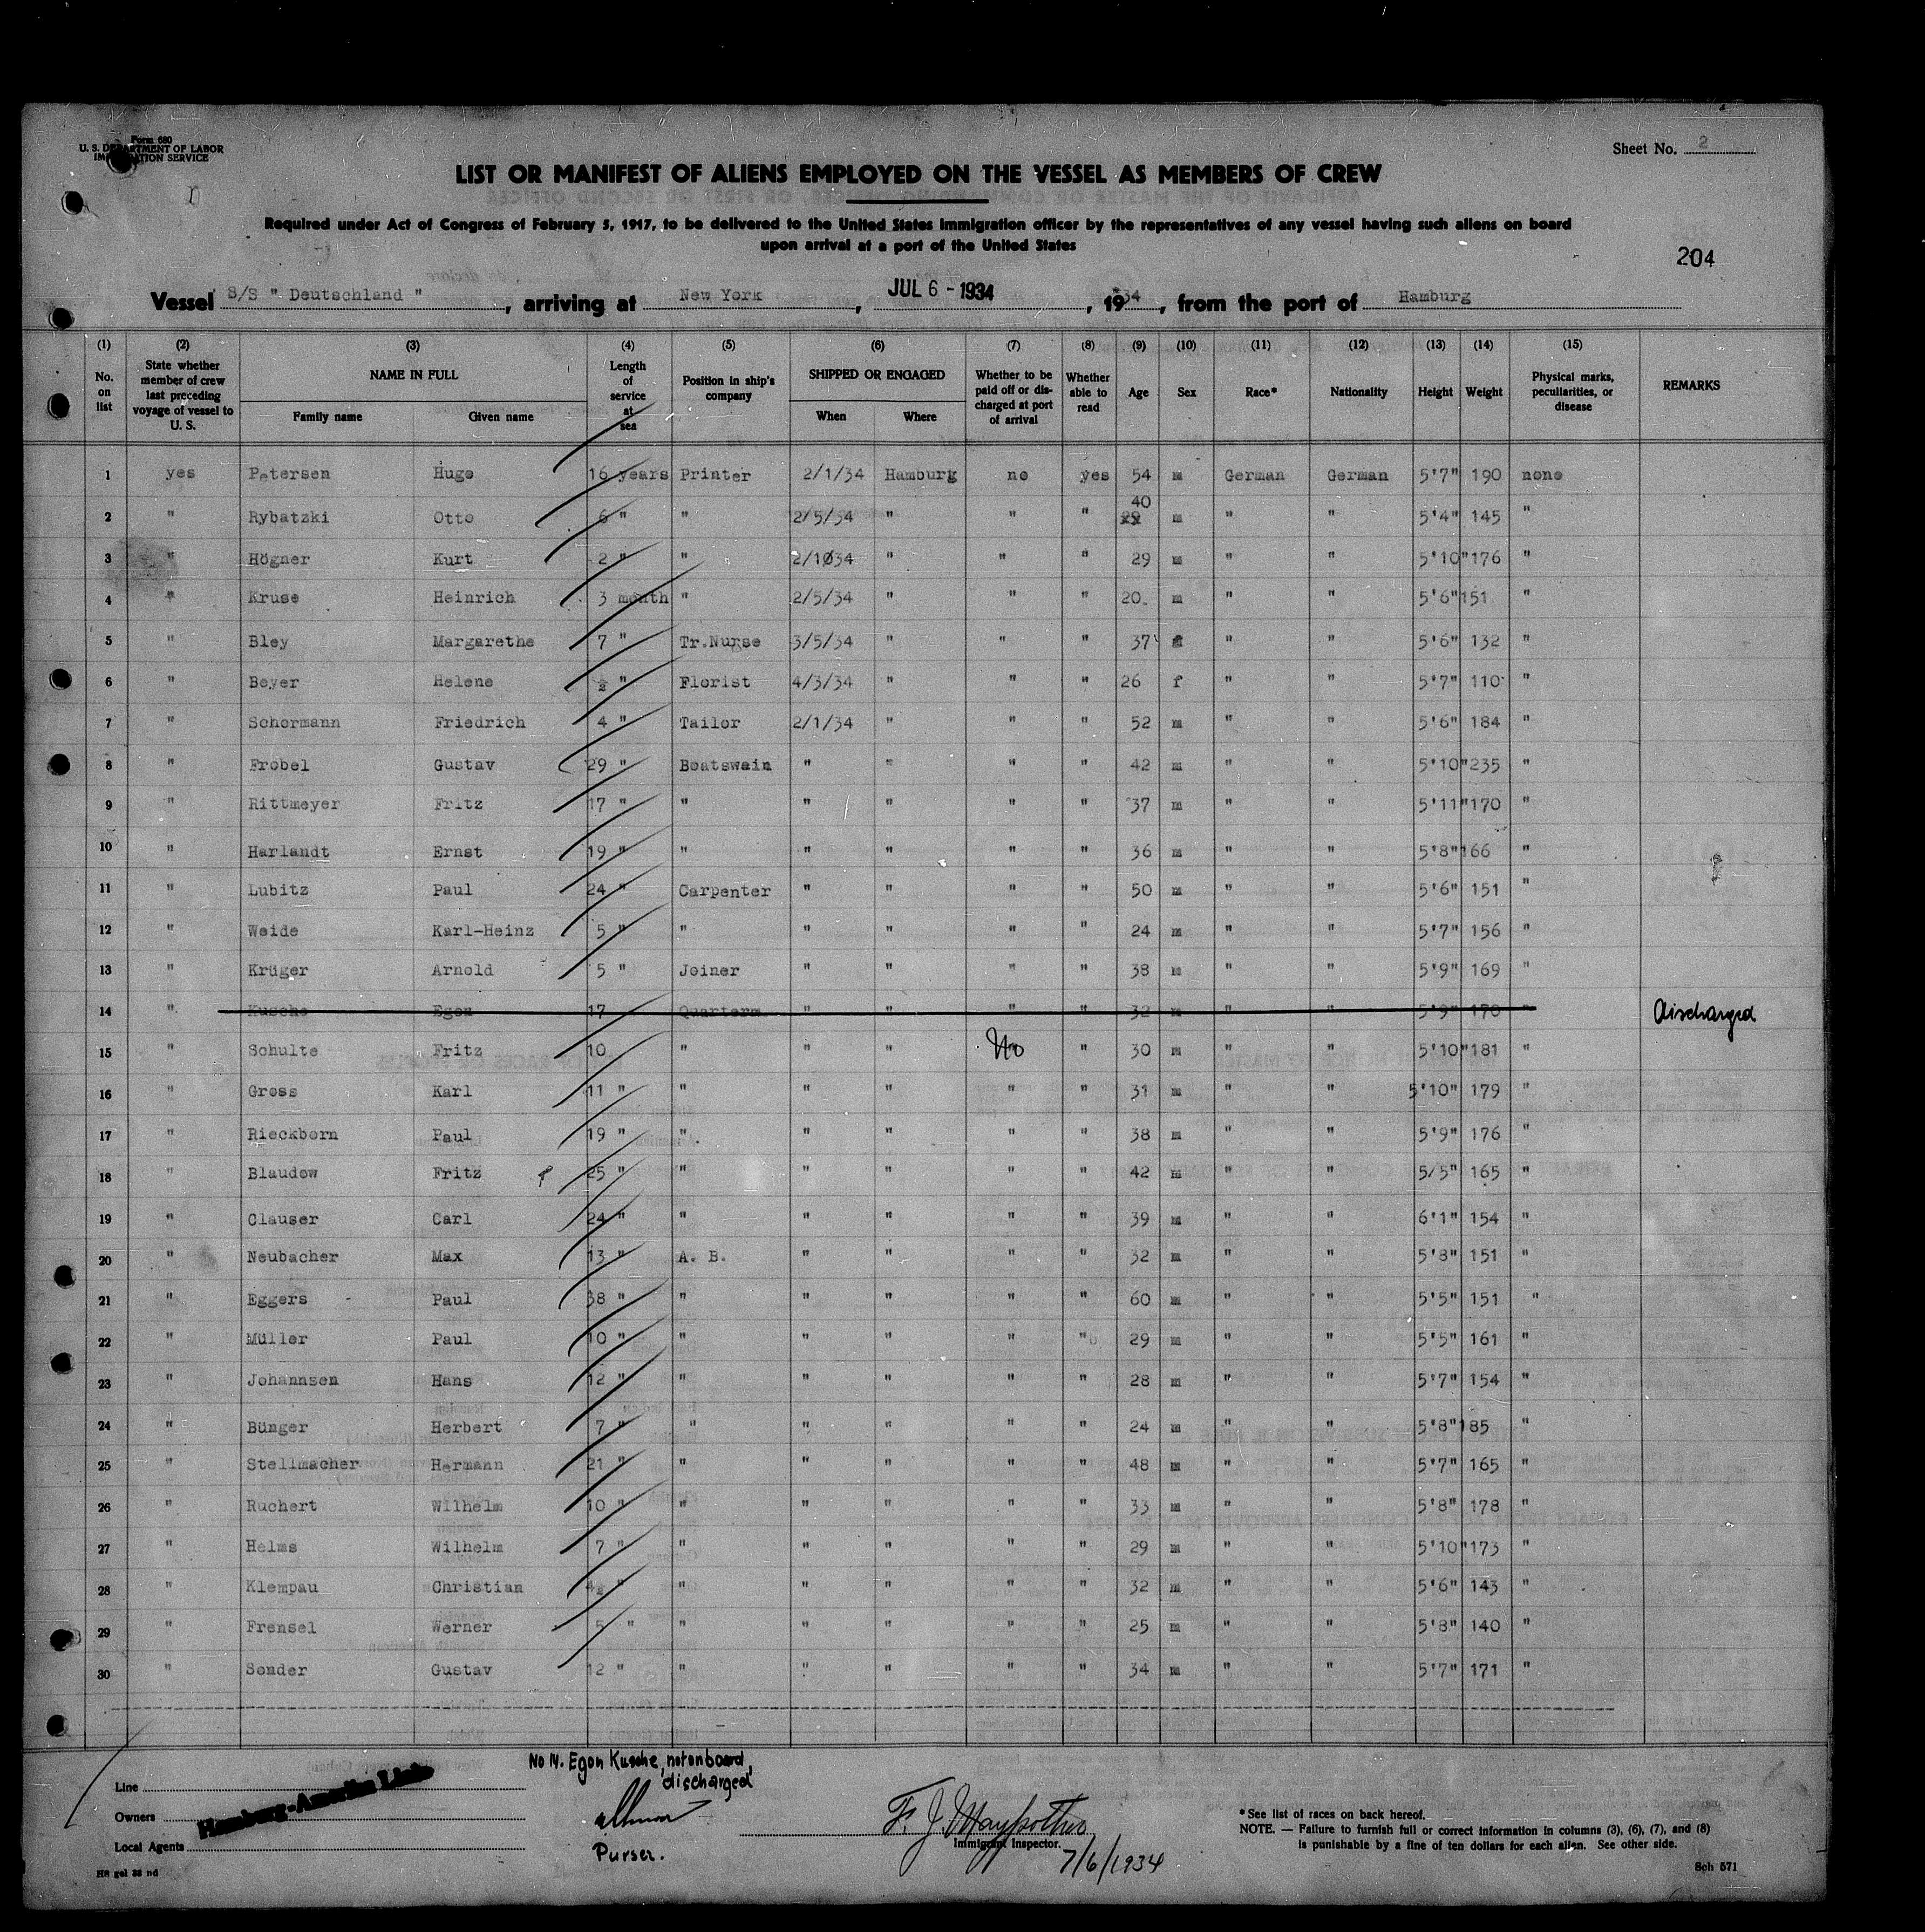 Form 680
U. S. DEPARTMENT OF LABOR
IMMIGRATION SERVICE
Sheet No. 2
LIST OR MANIFEST OF ALIENS EMPLOYED ON THE VESSEL AS MEMBERS OF CREW
Required under Act of Congress of February 5, 1917, to be delivered to the United States immigration officer by the representatives of any vessel having such aliens on board
upon arrival at a port of the United States
204
Vessel S/S " Deutschland ", arriving at New York, JUL 6 - 1934, 1934, from the port of Hamburg
(1) (2) (3) (4) (5) (6) (7) (8) (9) (10) (11) (12) (13) (14) (15)
No. on list State whether member of crew last preceding voyage of vessel to U. S. NAME IN FULL Family name Given name Length of service at sea Position in ship's company SHIPPED OR ENGAGED When Where Whether to be paid off or discharged at port of arrival Whether able to read Age Sex Race* Nationality Height Weight Physical marks, peculiarities, or disease REMARKS
1 yes Petersen Hugo 16 years Printer 2/1/34 Hamburg no yes 54 m German German 5'7" 190 none
2 " Rybatzki Otto 6 " " 2/5/34 " " " 40 29 m " " 5'4" 145 "
3 " Högner Kurt 2 " " 2/1034 " " " 29 m " " 5'10" 176 "
4 " Kruse Heinrich 3 month " 2/5/34 " " " 20 m " " 5'6" 151 "
5 " Bley Margarethe 7 " Tr.Nurse 3/5/34 " " " 37 f " " 5'6" 132 "
6 " Beyer Helene ½ " Florist 4/3/34 " " " 26 f " " 5'7" 110 "
7 " Schormann Friedrich 4 " Tailor 2/1/34 " " " 52 m " " 5'6" 184 "
8 " Frobel Gustav 29 " Boatswain " " " " 42 m " " 5'10" 235 "
9 " Rittmeyer Fritz 17 " " " " " " 37 m " " 5'11" 170 "
10 " Harlandt Ernst 19 " " " " " " 36 m " " 5'8" 166 "
11 " Lubitz Paul 24 " Carpenter " " " " 50 m " " 5'6" 151 "
12 " Weide Karl-Heinz 5 " " " " " " 24 m " " 5'7" 156 "
13 " Krüger Arnold 5 " Joiner " " " " 38 m " " 5'9" 169 "
14 " Kusche Egon 17 Quarterm. " " " " 32 m " " 5'9" 170 " discharged
15 " Schulte Fritz 10 " " " No " 30 m " " 5'10" 181 "
16 " Gross Karl 11 " " " " " " 31 m " " 5'10" 179 "
17 " Rieckborn Paul 19 " " " " " " 38 m " " 5'9" 176 "
18 " Blaudow Fritz 25 " " " " " " 42 m " " 5/5" 165 "
19 " Clauser Carl 24 " " " " " " 39 m " " 6'1" 154 "
20 " Neubacher Max 13 " A. B. " " " " 32 m " " 5'8" 151 "
21 " Eggers Paul 38 " " " " " " 60 m " " 5'5" 151 "
22 " Müller Paul 10 " " " " " " 29 m " " 5'5" 161 "
23 " Johannsen Hans 12 " " " " " " 28 m " " 5'7" 154 "
24 " Bünger Herbert 7 " " " " " " 24 m " " 5'8" 185 "
25 " Stellmacher Hermann 21 " " " " " " 48 m " " 5'7" 165 "
26 " Ruchert Wilhelm 10 " " " " " " 33 m " " 5'8" 178 "
27 " Helms Wilhelm 7 " " " " " " 29 m " " 5'10" 173 "
28 " Klempau Christian 4½ " " " " " " 32 m " " 5'6" 143 "
29 " Frensel Werner 5 " " " " " " 25 m " " 5'8" 140 "
30 " Sonder Gustav 12 " " " " " " 34 m " " 5'7" 171 "
No 14. Egon Kusche, not on board,
discharged
Purser.
Line
Owners
Local Agents
Hamburg-Amerika Linie
Immigrant Inspector.
7/6/1934
*See list of races on back hereof.
NOTE. — Failure to furnish full or correct information in columns (3), (6), (7), and (8)
is punishable by a fine of ten dollars for each alien. See other side.
Sch 571